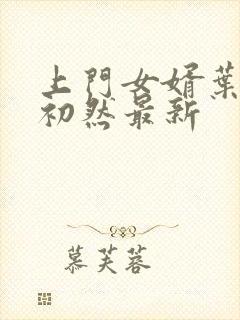 上門女婿葉
初然最新
慕芙蓉